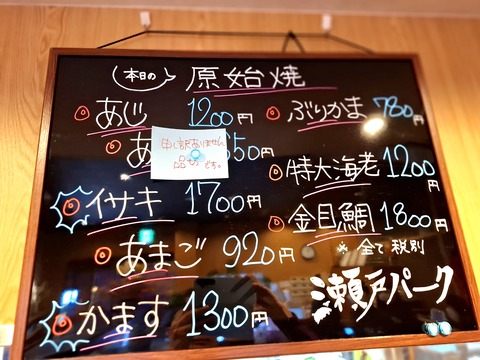 本日の 原始焼
あじ 1200円
あ 650円
申し訳ありません
品切れです。
イサキ 1700円
あまご 920円
かます 1300円
ぶりかま 780円
特大海老 1200円
金目鯛 1800円
※全て税別
瀬戸パーク